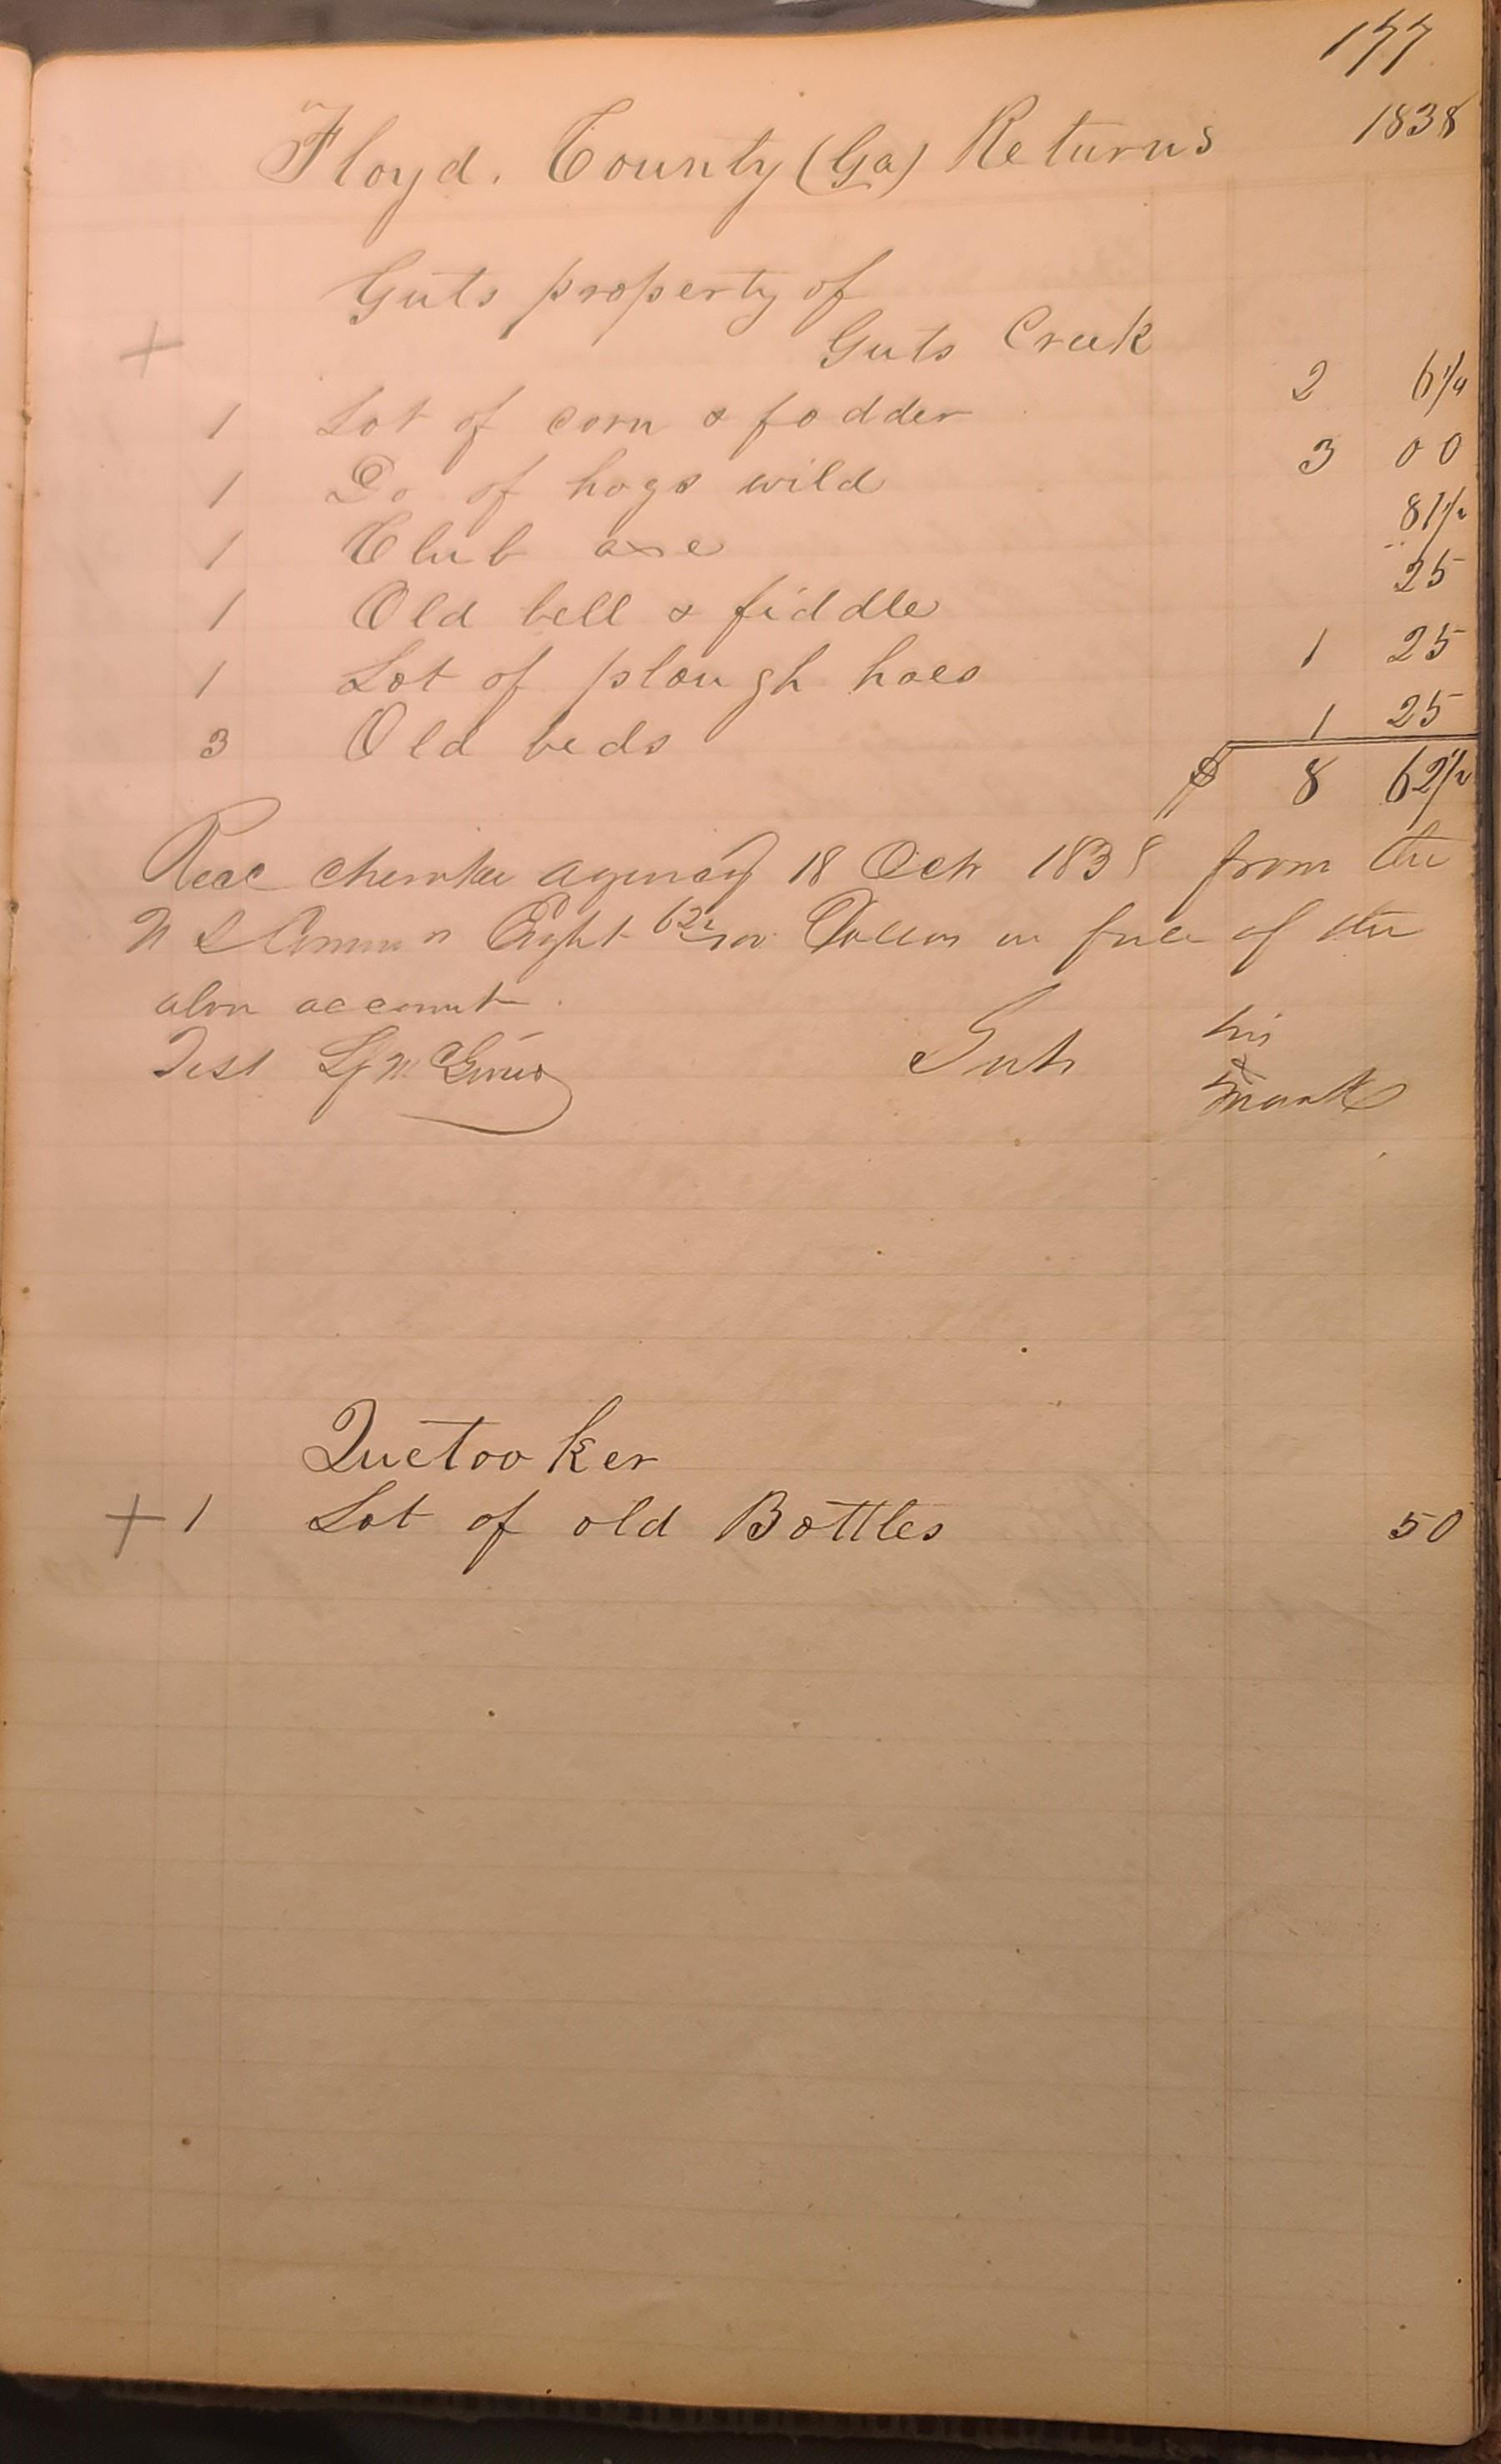 177
Floyd. County (Ga) Returns 1838
Guts property of
+ Guts Creek
1 Lot of corn & fodder 2 6 1/4
1 Do of hogs wild 3 00
1 Club axe 81 1/2
1 Old bell & fiddle 25
1 Lot of plough hoes 1 25
3 Old beds 1 25
$ 8 62 1/2
Recd cherokee agency 18 Octr 1838 from the
U S Eight 62 1/2/100 Dollars in full of the
above account.
Test his
Guts x
mark
Quetooker
+ 1 Lot of old Bottles 50